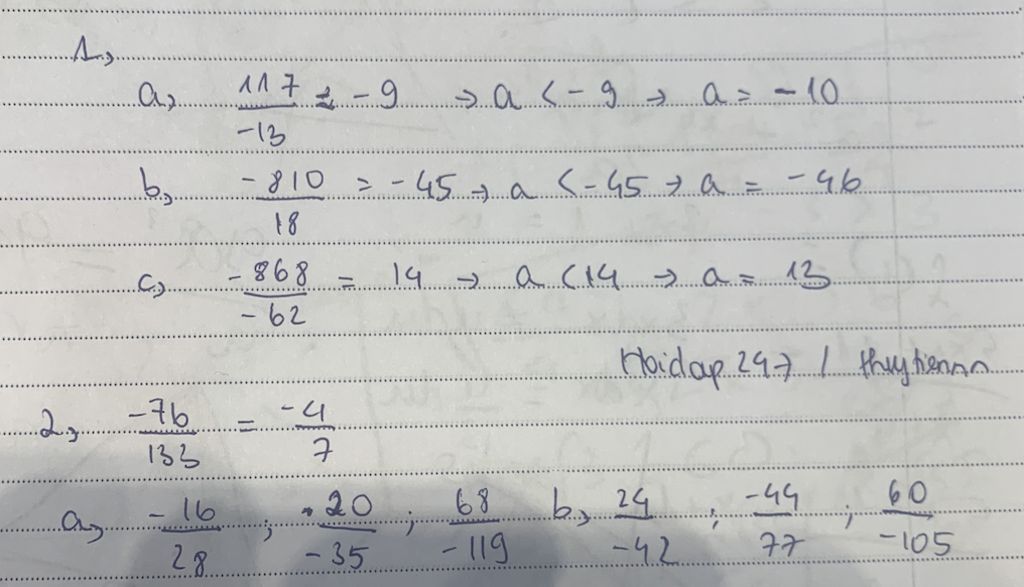 1,
a, 117/-13 = -9 → a < -9 → a = -10
b, -810/18 = -45 → a < -45 → a = -46
c, -868/-62 = 14 → a < 14 → a = 13
Hoidap 247 / thuytiennn
2, -76/133 = -4/7
a, -16/28 ; 20/-35 ; 68/-119 b, 24/-42 ; -44/77 ; 60/-105